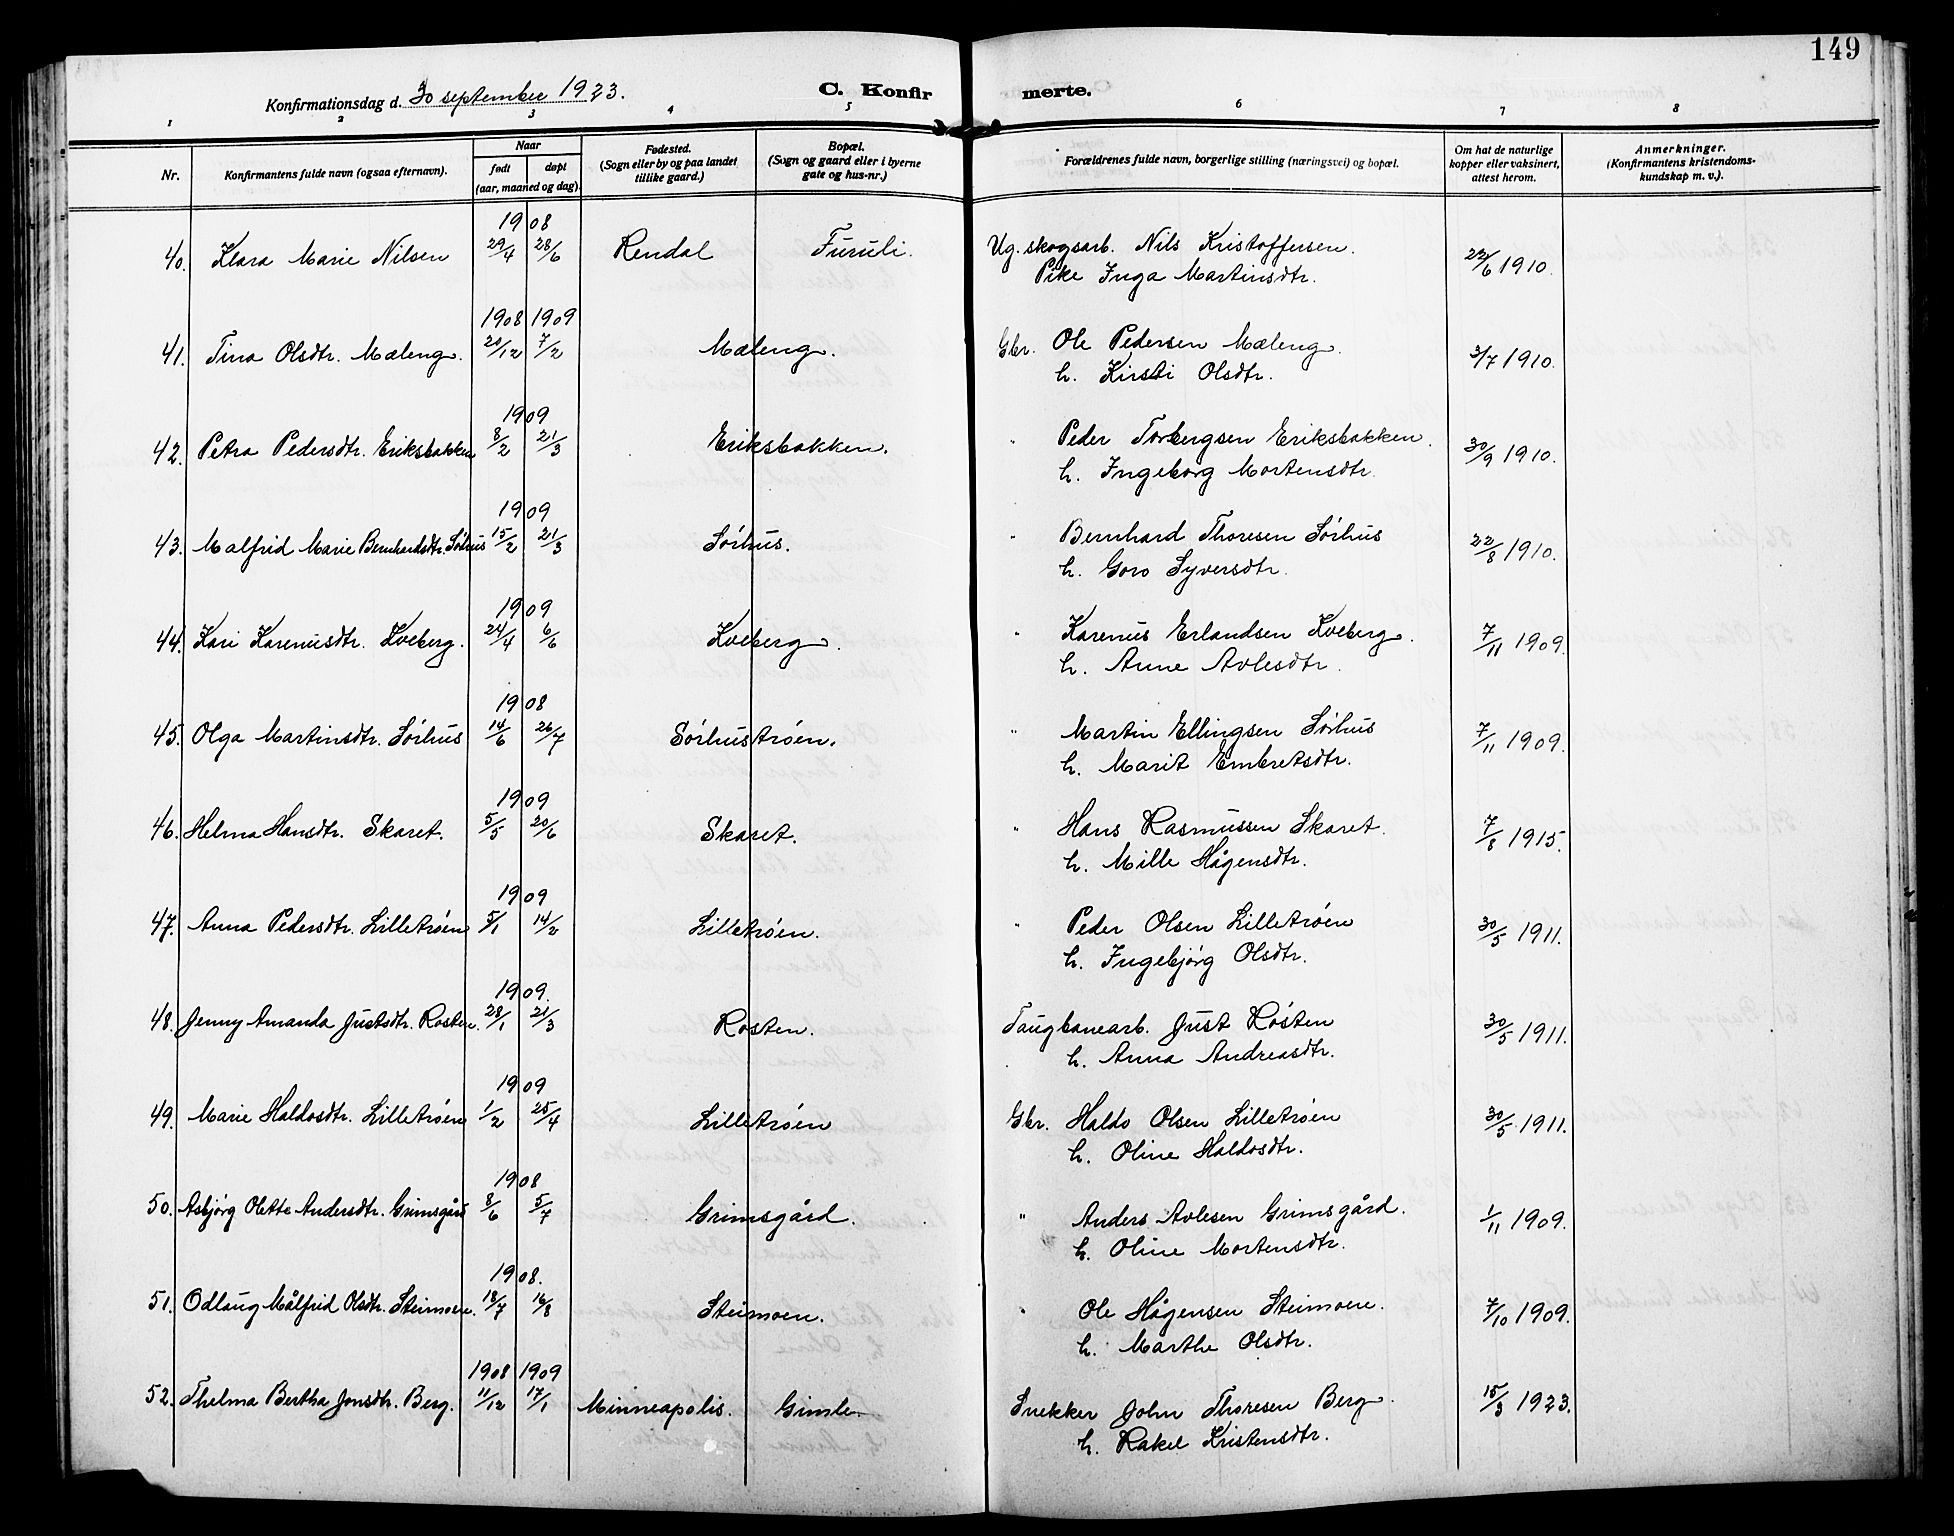 149
Konfirmationsdag d. 30 september 1923. C. Konfir merte.
1 2 3 4 5 6 7 8
Nr. Konfirmantens fulde navn (ogsaa efternavn). Naar født døpt (aar, maaned og dag) Fødested. (Sogn eller by og paa landet tillike gaard.) Bopæl. (Sogn og gaard eller i byerne gate og hus-nr.) Forældrenes fulde navn, borgerlige stilling (næringsvei) og bopæl. Om hat de naturlige kopper eller vaksinert, attest herom. Anmerkninger. (Konfirmantens kristendoms-kundskap m. v.)
1908
40. Klara Marie Nilsen 29/4 28/6 Rendal Furuli. Ug. skogsarb. Nils Kristoffersen. 22/6 1910.
Pike Inga Martinsdtr.
1908 1909
41. Tina Olsdtr. Mæleng. 20/12 7/2 Mæleng. Gbr. Ole Pedersen Mæleng. 3/7 1910.
h. Kirsti Olsdtr.
1909
42. Petra Pedersdtr. Eriksbakken 8/2 21/3 Eriksbakken. " Peder Torbergsen Eriksbakken. 30/9 1910.
h. Ingeborg Mortensdtr.
1909
43. Malfrid Marie Bernhardsdtr. Sörhus 15/2 21/3 Sörhus. " Bernhard Thoresen Sörhus 22/8 1910.
h. Goro Syversdtr.
1909
44. Kari Karenusdtr. Kveberg. 24/4 6/6 Kveberg. " Karenus Erlandsen Kveberg. 7/11 1909.
h. Anne Avlesdtr.
1908
45. Olga Martinsdtr. Sörhus 14/6 26/7 Sörhuströen. " Martin Ellingsen Sörhus 7/11 1909.
h. Marit Embretsdtr.
1909
46. Helma Hansdtr. Skaret. 5/5 20/6 Skaret. " Hans Rasmussen Skaret. 7/8 1915.
h. Mille Hågensdtr.
1909
47. Anna Pedersdtr. Lilletröen 5/1 14/2 Lilletröen. " Peder Olsen Lilletröen 30/5 1911.
h. Ingebjörg Olsdtr.
1909.
48. Jenny Amanda Justsdtr. Rosten. 28/1 21/3 Rosten. Taugbanearb. Just Rosten 30/5 1911.
h. Anna Andreasdtr.
1909
49. Marie Haldosdtr. Lilletröen 1/2 25/4 Lilletröen Gbr. Haldo Olsen Lilletröen 30/5 1911.
h. Oline Haldosdtr.
1908
50. Asbjörg Olette Andersdtr. Grimsgård 8/6 5/7 Grimsgård. " Anders Avlesen Grimsgård. 1/11 1909.
h. Oline Mortensdtr.
1908.
51. Odlaug Målfrid Olsdtr. Steimoen. 18/7 16/8 Steimoen. " Ole Hågensen Steimoen. 7/10 1909.
h. Marthe Olsdtr.
1908 1909
52. Thelma Bertha Jonsdtr. Berg. 11/12 17/1 Minneapolis. Gimle. Snekker John Thoresen Berg. 15/3 1923.
h. Rakel Kristensdtr.